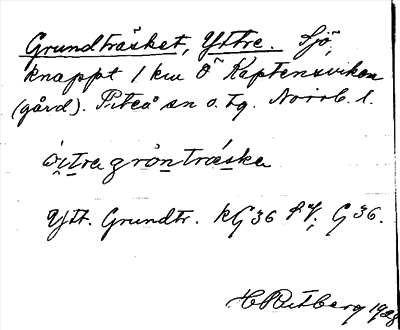 Grundträsket, Yttre. Sjö,
knappt 1 km Ö Kaptensviken
(gård). Piteå sn o. tg. Norrb. l.
ı̀tra grŏ̀nträ́ska
Ytt. Grundtr. kG36 G36.
1928